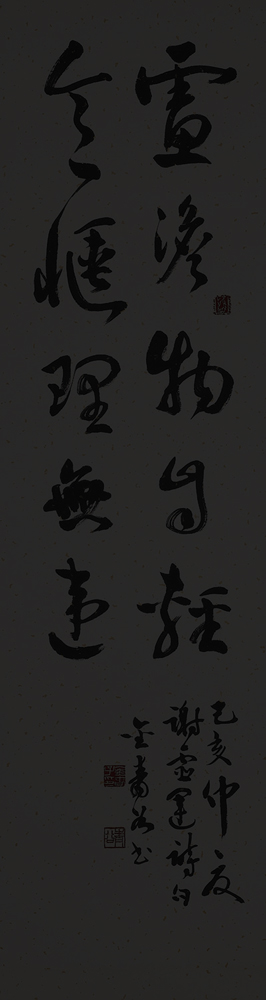 慮澹物自輕
意愜理無違
己亥仲夏
謝靈運詩句
書